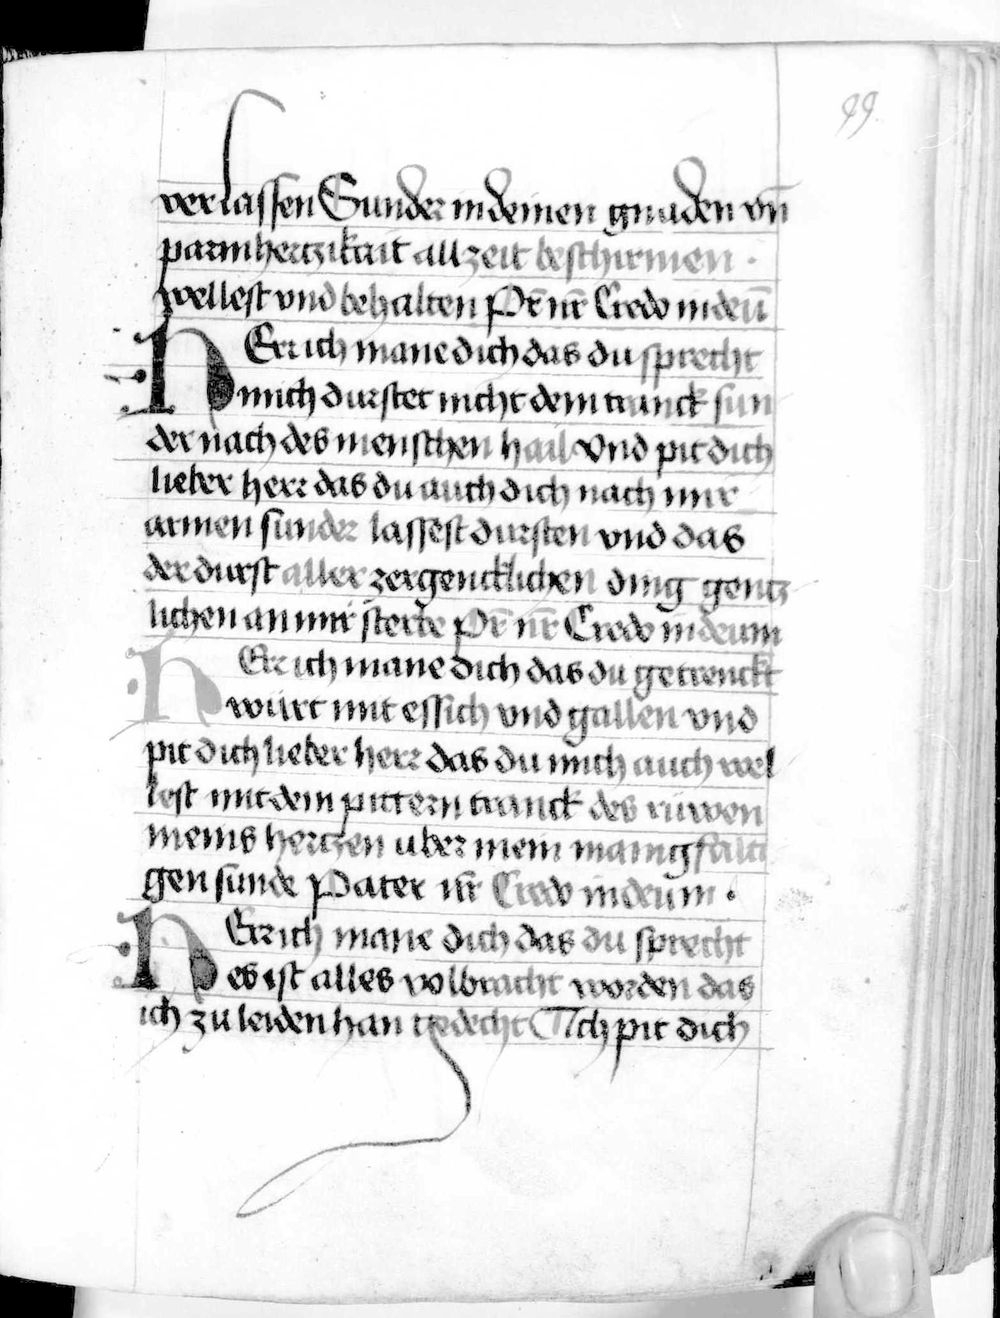 99
verlassen Sunder in deinen gnaden vn̄
parmhertzikait allzeit beschirmen ·
wellest vnd behalten Pr̄ nr̄ Credo in deū
HErr ich mane dich das du sprecht
mich durstet nicht dem tranck sun
der nach des menschen hail Vnd pit dich
lieber herr das du auch dich nach mir
armen sunder lassest dursten vnd das
der durst aller zergencklichen ding gentz
lichen an mir sterbe Pr̄ nr̄ Credo in deum
HErr ich mane dich das du getrenckt
würt mit essich vnd gallen vnd
pit dich lieber herr das du mich auch wel
lest mit dem pittern tranck des rüwen
meins hertzen uber mein manigfalti
gen sunde Pater nr̄ Credo in deum ·
HErr ich mane dich das du sprecht
es ist alles volbracht worden das
ich zu leiden han gedecht Ich pit dich